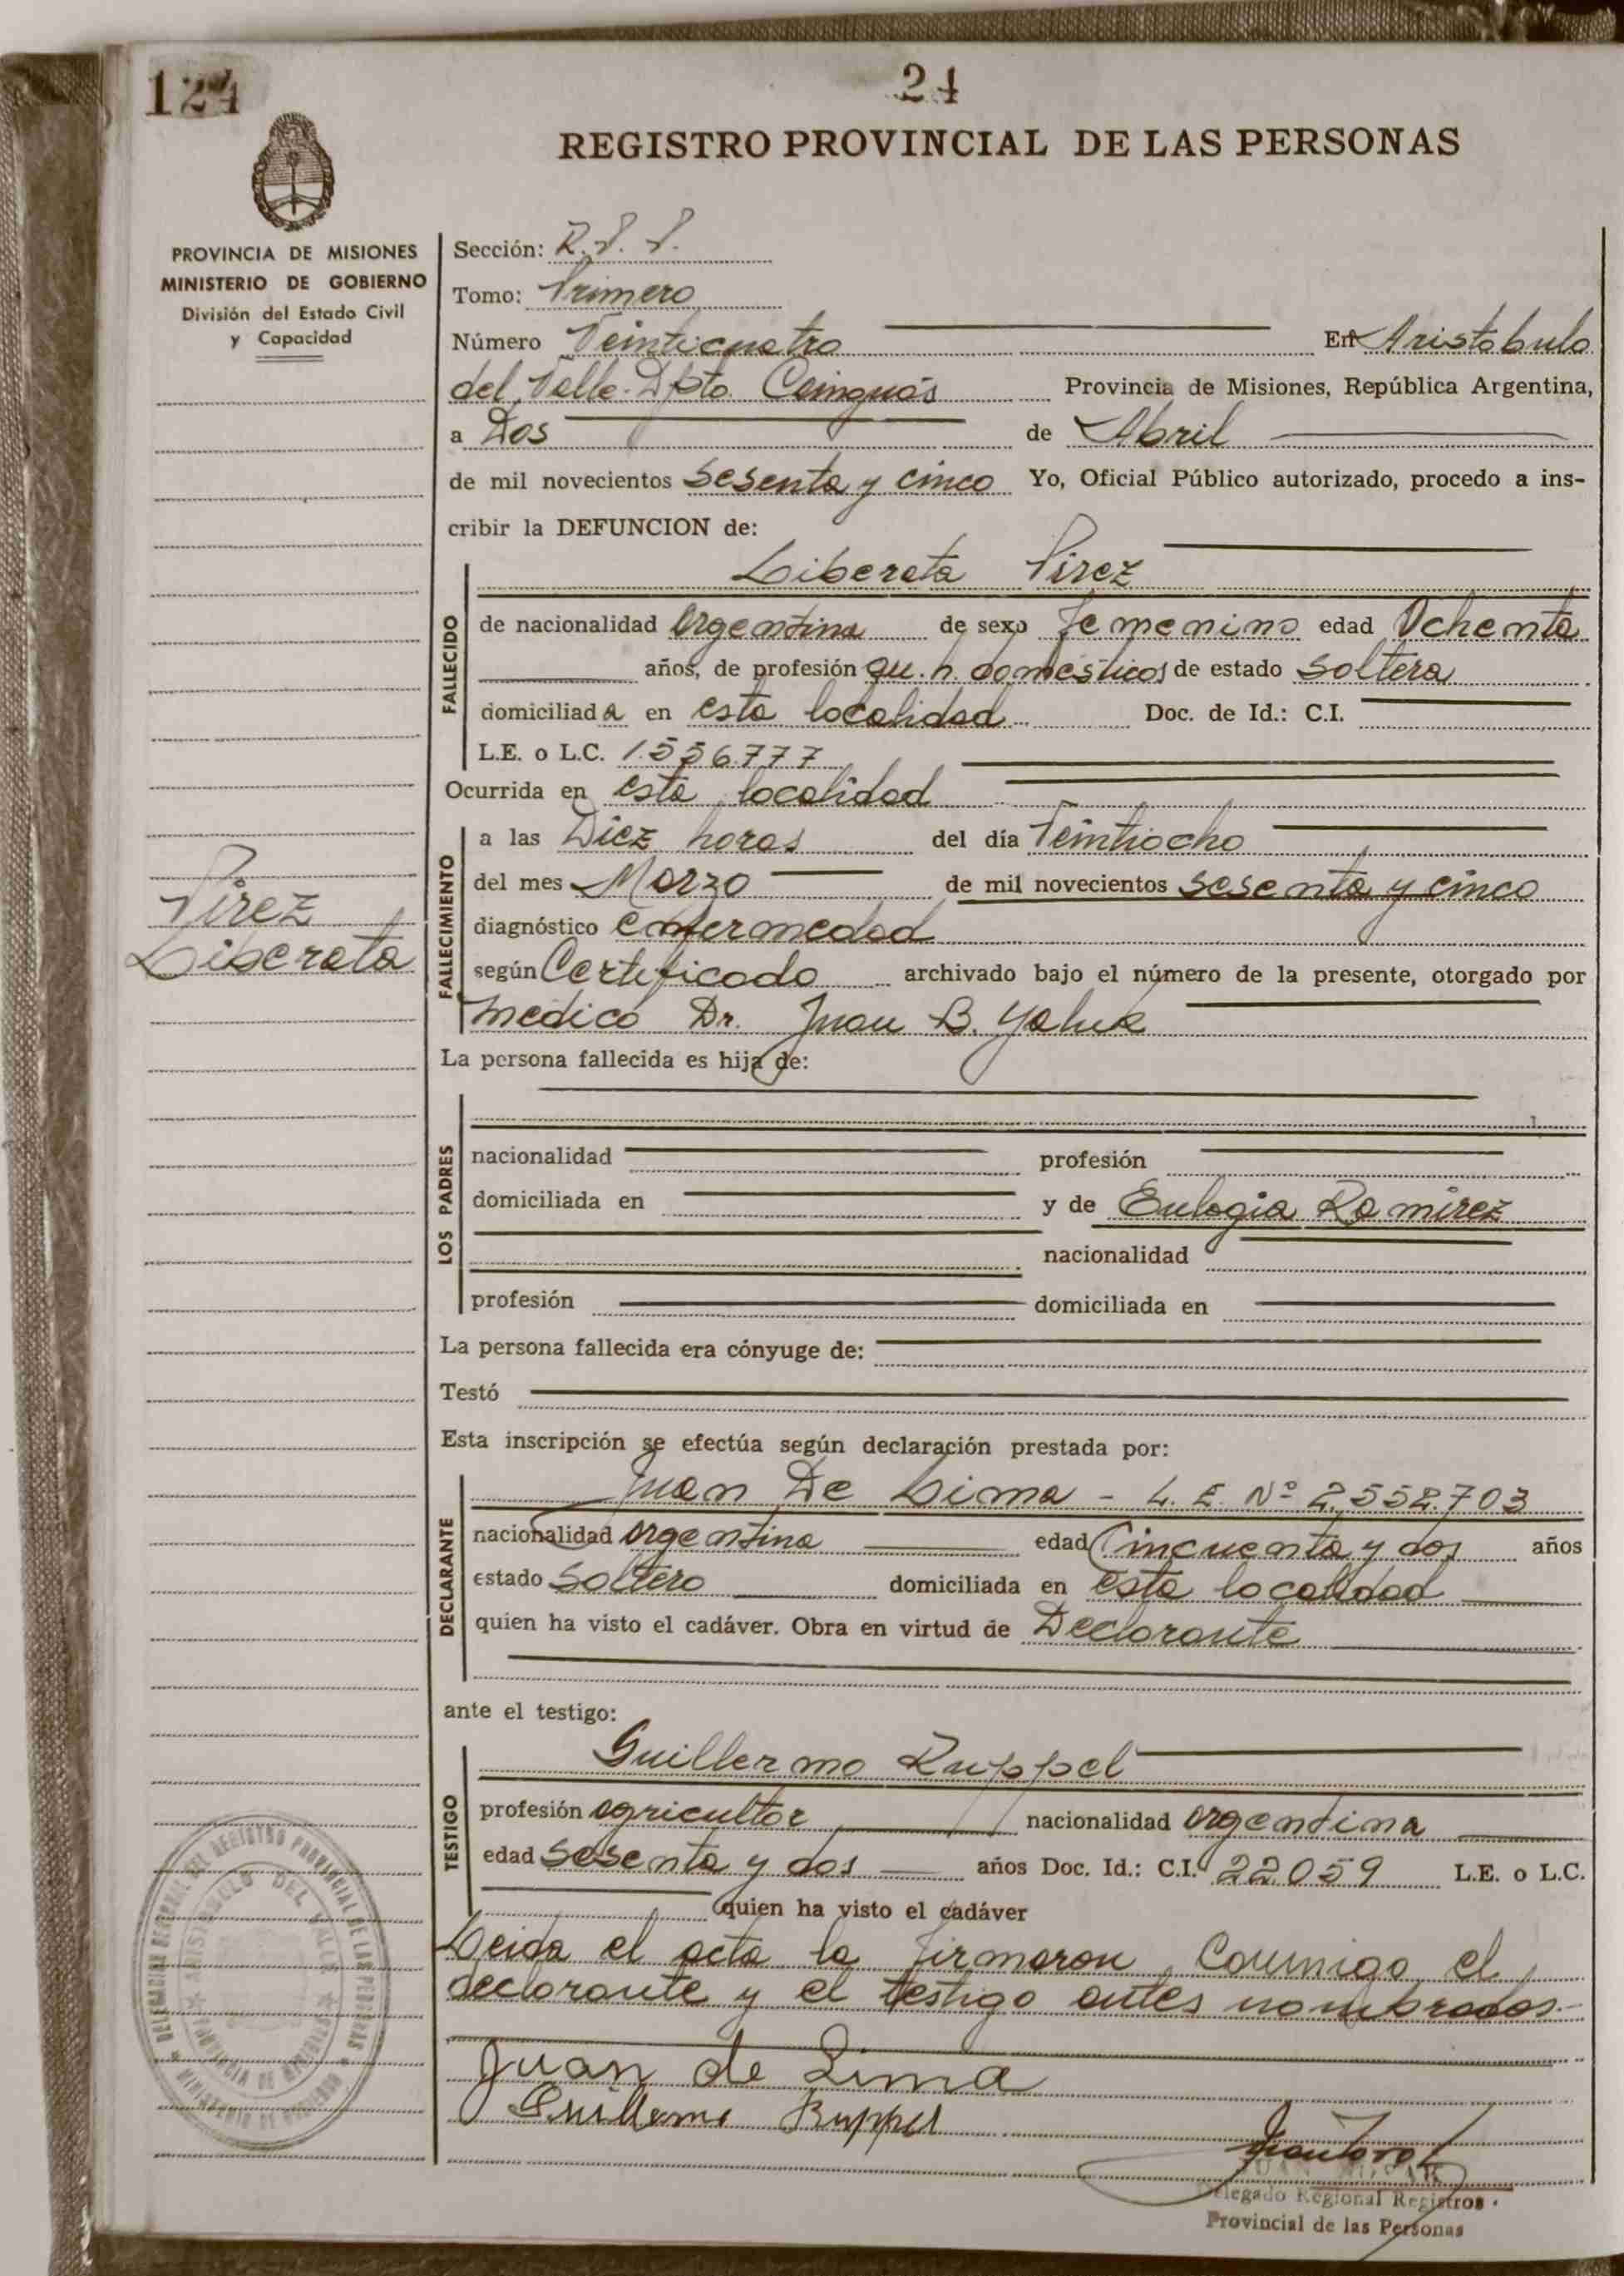 124
24
REGISTRO PROVINCIAL DE LAS PERSONAS
PROVINCIA DE MISIONES
MINISTERIO DE GOBIERNO
División del Estado Civil
y Capacidad
Sección: R.P.P.
Tomo: Primero
Número Veinticuatro En Aristóbulo
del Valle-Dpto. Cainguás Provincia de Misiones, República Argentina,
a Dos de Abril
de mil novecientos sesenta y cinco Yo, Oficial Público autorizado, procedo a ins-
cribir la DEFUNCION de:
Liberata Pirez
FALLECIDO
de nacionalidad argentina de sexo femenino edad Ochenta
años, de profesión qu. h. domésticos de estado soltera
domiciliada en esta localidad Doc. de Id.: C.I.
L.E. o L.C. 1.556.777
Ocurrida en esta localidad
FALLECIMIENTO
a las Diez horas del día Veintiocho
del mes Marzo de mil novecientos sesenta y cinco
diagnóstico enfermedad
según Certificado archivado bajo el número de la presente, otorgado por
médico Dr. Juan B.
Pirez
Liberata
La persona fallecida es hija de:
LOS PADRES
nacionalidad profesión
domiciliada en y de Eulogia Ramirez
nacionalidad
profesión domiciliada en
La persona fallecida era cónyuge de:
Testó
Esta inscripción se efectúa según declaración prestada por:
Juan De Lima - L.E. Nº 2.552.703
DECLARANTE
nacionalidad argentina edad Cincuenta y dos años
estado soltero domiciliada en esta localidad
quien ha visto el cadáver. Obra en virtud de Declarante
ante el testigo:
Guillermo Ruppel
TESTIGO
profesión agricultor nacionalidad argentina
edad sesenta y dos años Doc. Id.: C.I. 22.059 L.E. o L.C.
quien ha visto el cadáver
Leida el acta la firmaron conmigo el
declarante y el testigo antes nombrados.-
Juan de Lima
Guillermo Ruppel
DELEGACION REGIONAL DEL REGISTRO PROVINCIAL DE LAS PERSONAS
MINISTERIO DE GOBIERNO
ARISTOBULO DEL VALLE
PROVINCIA DE MISIONES
Delegado Regional Registros
Provincial de las Personas